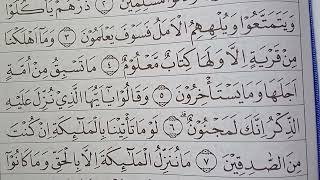 مُسْلِمِيْنَ ۝٢ ذَرْهُمْ يَأْكُلُوْا
وَيَتَمَتَّعُوْا وَيُلْهِهِمُ الْاَمَلُ فَسَوْفَ يَعْلَمُوْنَ ۝٣ وَمَآ اَهْلَكْنَا
مِنْ قَرْيَةٍ اِلَّا وَلَهَا كِتَابٌ مَّعْلُوْمٌ ۝٤ مَا تَسْبِقُ مِنْ اُمَّةٍ
اَجَلَهَا وَمَا يَسْتَأْخِرُوْنَ ۝٥ وَقَالُوْا يٰٓاَيُّهَا الَّذِيْ نُزِّلَ عَلَيْهِ
الذِّكْرُ اِنَّكَ لَمَجْنُوْنٌ ۝٦ لَوْ مَا تَأْتِيْنَا بِالْمَلٰٓئِكَةِ اِنْ كُنْتَ
مِنَ الصّٰدِقِيْنَ ۝٧ مَا نُنَزِّلُ الْمَلٰٓئِكَةَ اِلَّا بِالْحَقِّ وَمَا كَانُوْٓا